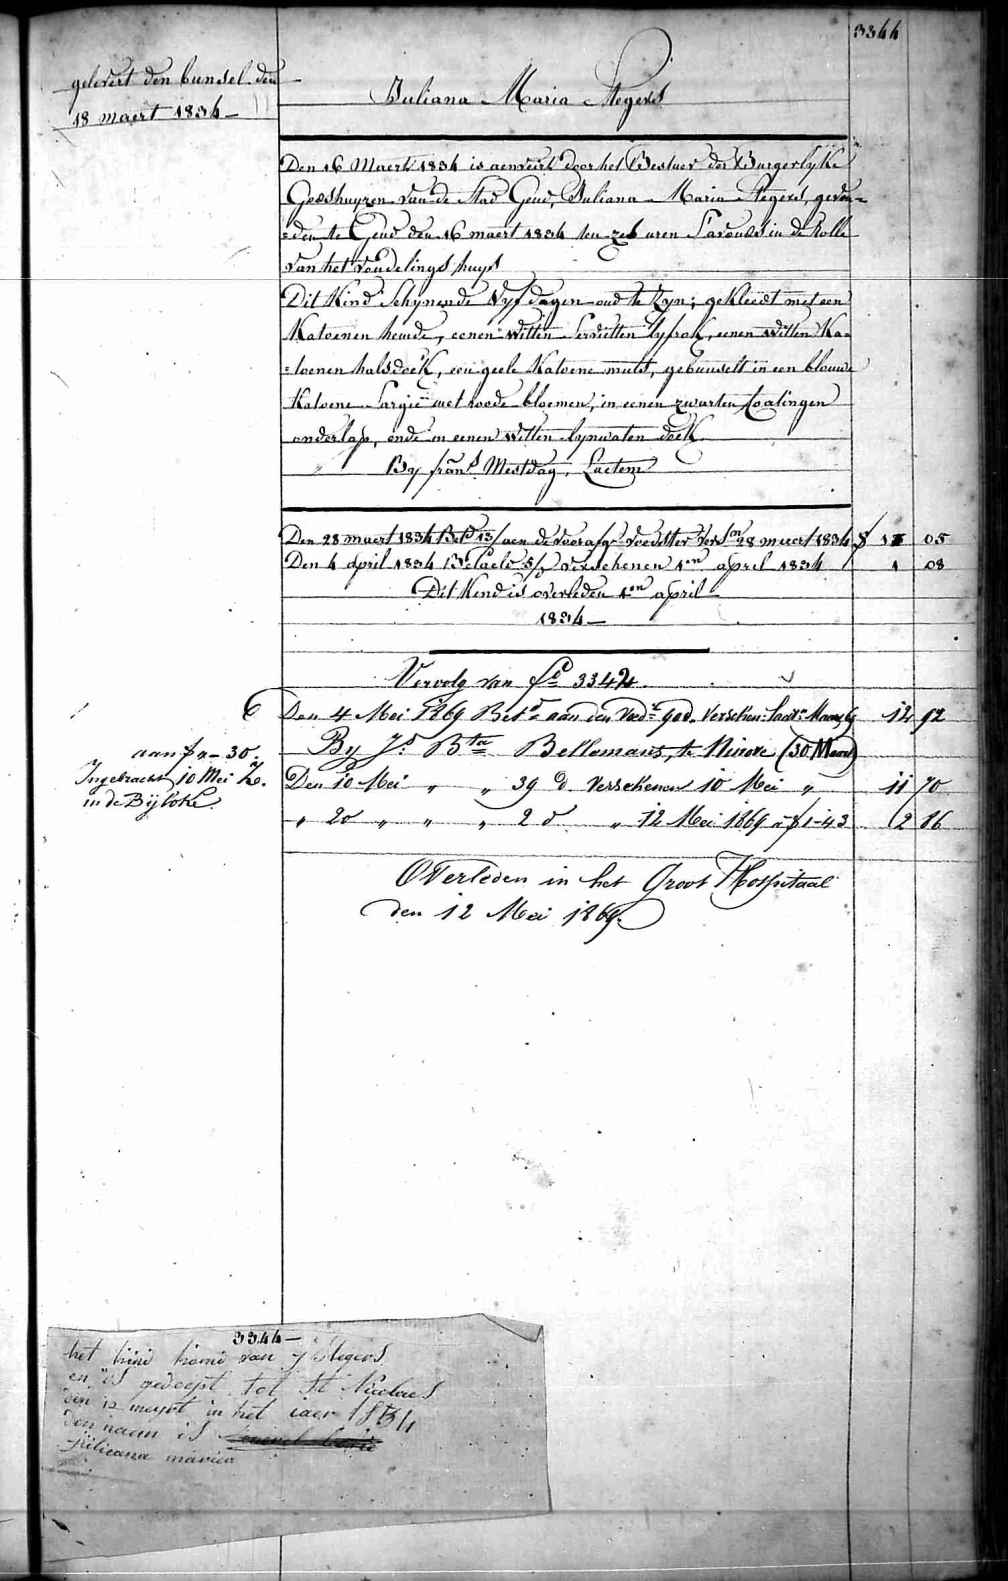 3344
gelevert den bunsel den
18 maert 1834
Juliana Maria Stegers
Den 16 Maert 1834 is aenveirt door het Bestuer der Burgerlyke
Godshuyzen van de Stad Gend, Juliana Maria Stegers, gevon=
=den te Gend den 16 maert 1834 ten zes uren s'avonds in de Rolle
van het vondelings huys
Dit Kind Schynende Vyf dagen oud te Zyn; gekleedt met een
Katoenen hemde, eenen witten Servietten lyfrok, eenen witten Ka=
=toenen halsdoek, een geele Katoene muts, gebunselt in een blouwe
Katoene Sargie met roode bloemen, in eenen zwarten Coatingen
onderlap, ende in eenen witten lynwaten doek
By frans Mestdag, Laetem
Den 28 maert 1834 Bet 13/ aen de voorafg voedster vers en 28 maert 1834 f 1 05
Den 4 april 1834 Betaelt 5/ verschenen 1en april 1834 1 08
Dit Kind is overleden 1en april
1834
Vervolg van fo 3342
6 Den 4 Mei 1869 Betd aan den Voedr god. Verschen: laatn Maart 69 12 92
aan fr - 30.
By Jd Bta Bellemans, te Ninove (30 Maart)
Ingebracht 10 Mei
Den 10 Mei " " 39 d Verschenen 10 Mei " 11 70
in de Bijloke
" 20 " " " 2 d " 12 Mei 1869 a f 1-43 2 86
Overleden in het Groot Hospitaal
den 12 Mei 1869.
3344
het kind komd van j Stegers
en is gedoept tot St Nicolaes
den 12 meyrt in het iaer 1834
den naem is
julieana maria